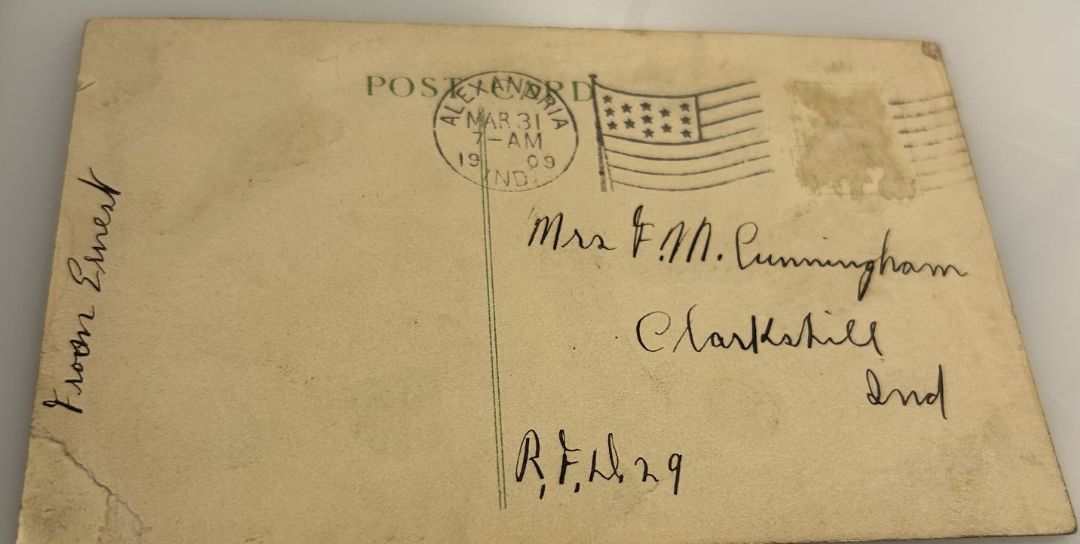 POST CARD
ALEXANDRIA
MAR 31
7-AM
19 09
IND.
Mrs F. M. Cunningham
Clarkshill
Ind
R.F.D. 29
From Ernest